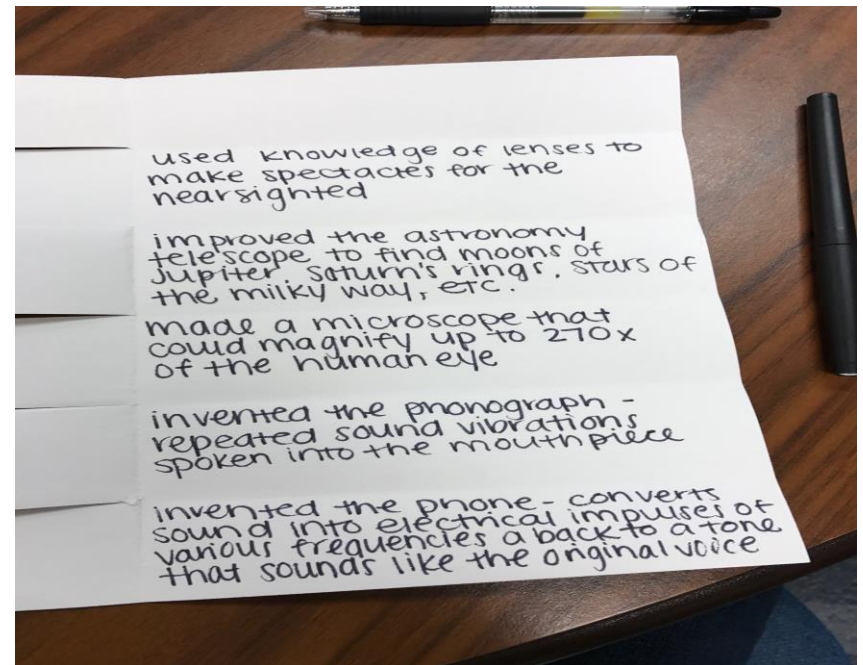 used knowledge of lenses to
make spectacles for the
nearsighted
improved the astronomy
telescope to find moons of
jupiter. saturn's rings, stars of
the milky way, etc.
made a microscope that
could magnify up to 270x
of the human eye
invented the phonograph -
repeated sound vibrations
spoken into the mouthpiece
invented the phone - converts
sound into electrical impulses of
various frequencies a back to a tone
that sounds like the original voice